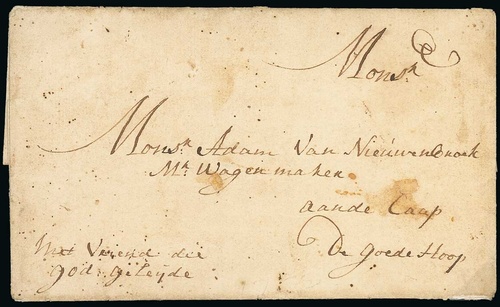 Monsr
Monsr Adam Van Nieuwenbroek
Mr Wagenmaker
aande Caap
De Goede Hoop
Met Vriend die
godt geleyde